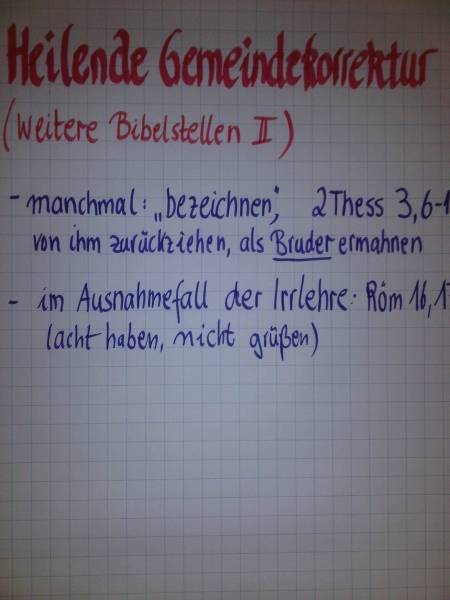 Heilende Gemeindekorrektur
(Weitere Bibelstellen II)
- manchmal: „bezeichnen“, 2Thess 3,6-1
von ihm zurückziehen, als Bruder ermahnen
- im Ausnahmefall der Irrlehre: Röm 16,17
(acht haben, nicht grüßen)